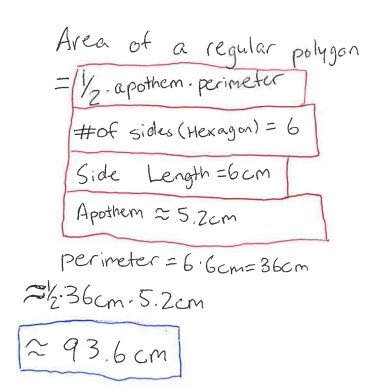 Area of a regular polygon
= 1/2 · apothem · perimeter
# of sides (Hexagon) = 6
Side Length = 6cm
Apothem ≈ 5.2cm
perimeter = 6 · 6cm = 36cm
≈ 1/2 · 36cm · 5.2cm
≈ 93.6 cm